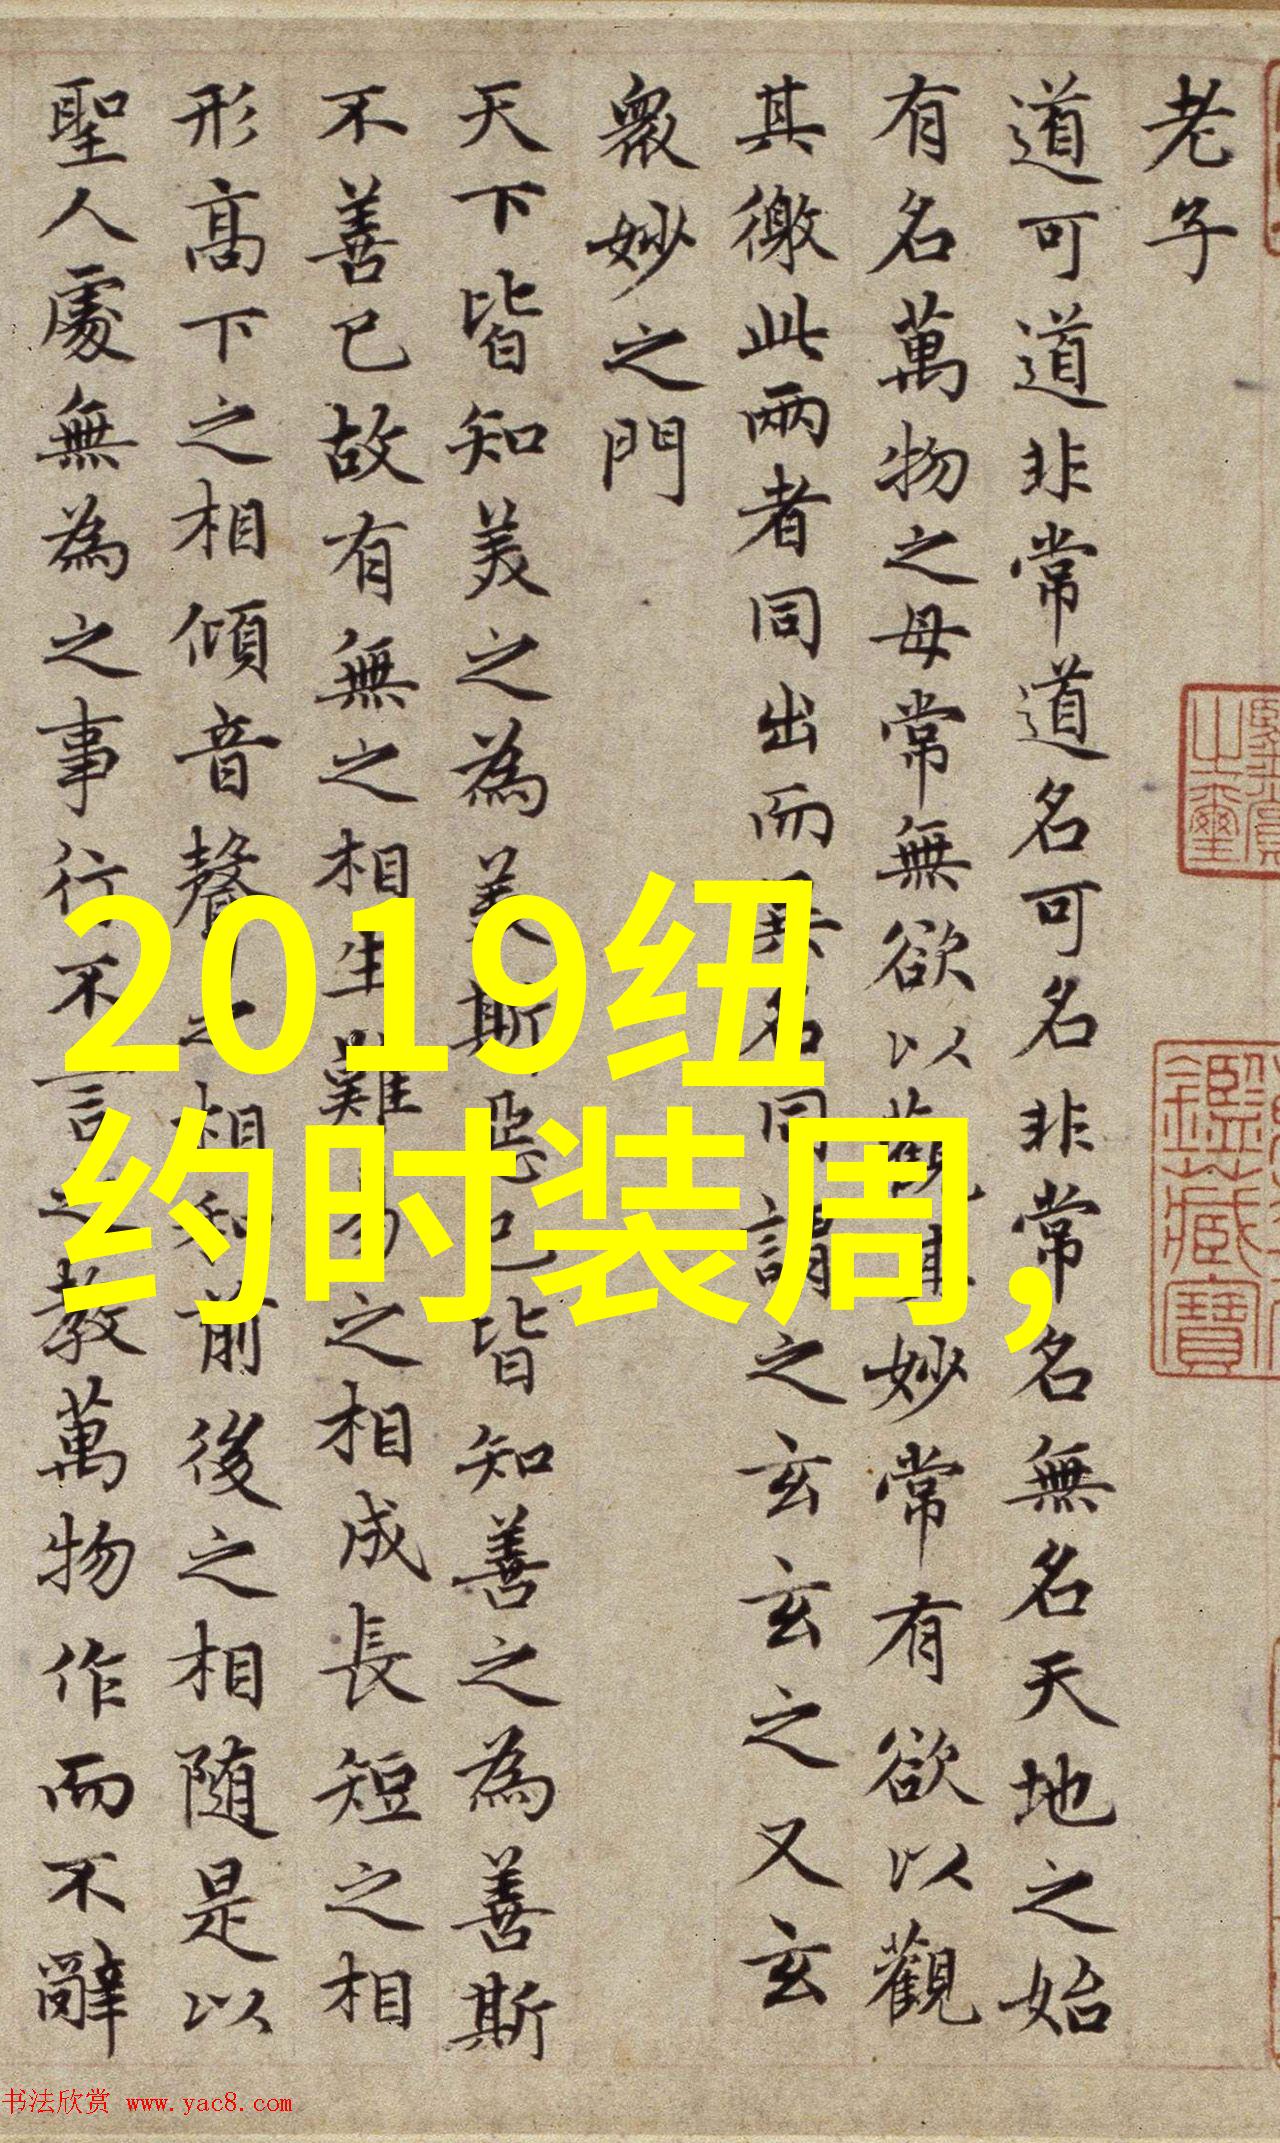 老子
道可道非常道名可名非常名無名天地之始
有名萬物之母常無欲以觀其妙常有欲以觀
其徼此兩者同出而異名同謂之玄玄之又玄
衆妙之門
天下皆知美之為美斯惡已皆知善之為善斯
不善已故有無之相生難易之相成長短之相
形高下之相傾音聲之相和前後之相随是以
聖人處無為之事行不言之教萬物作而不辭
2019纽
约时装周,
书法欣赏 www.yac8.com